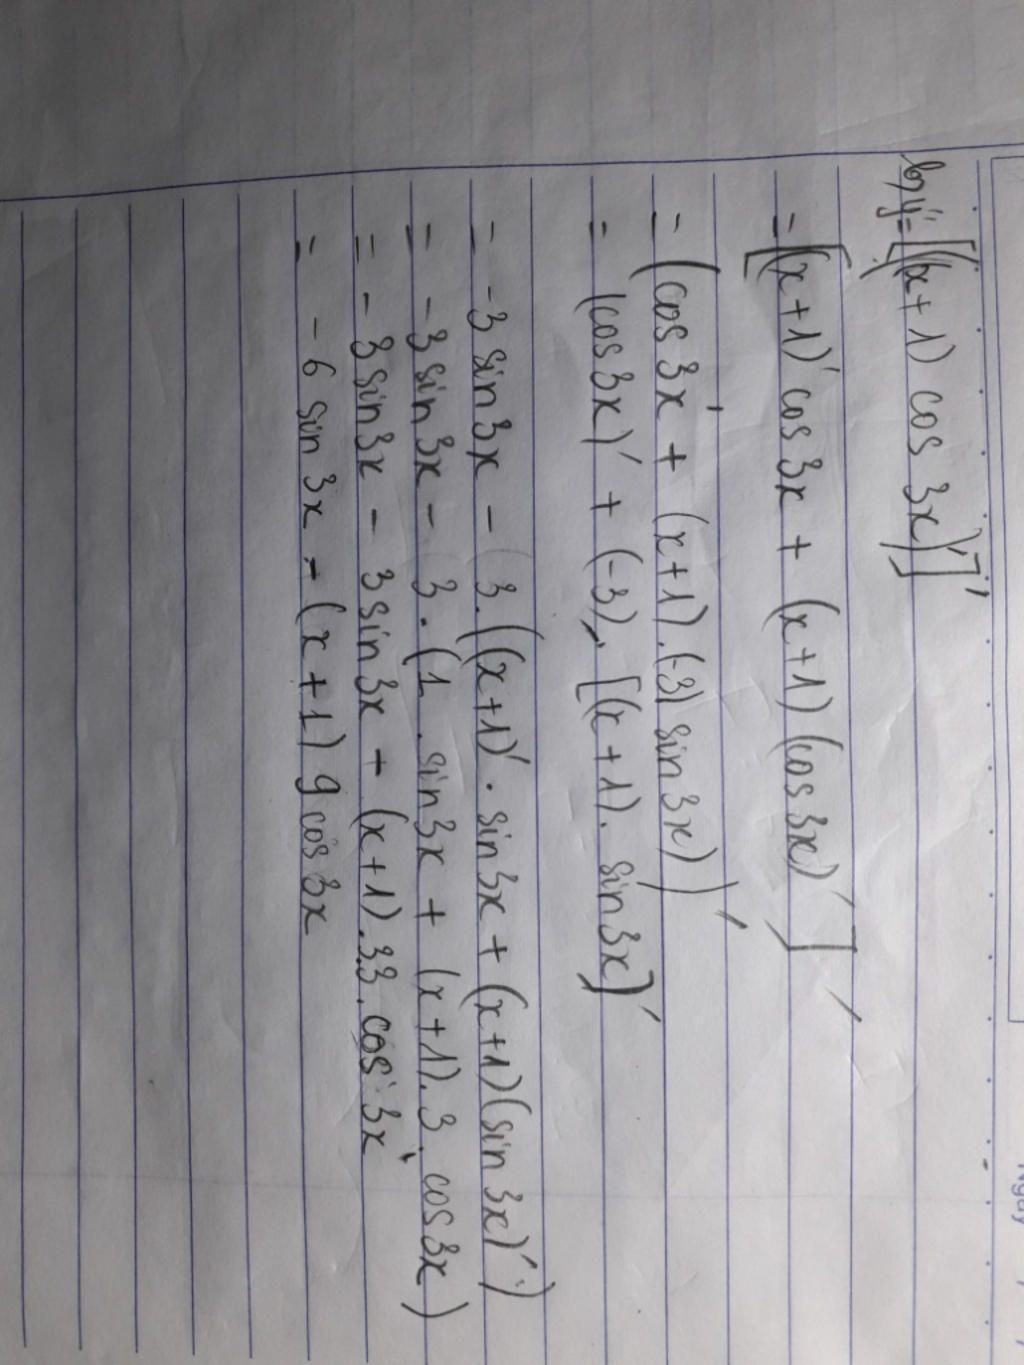 y' = [((x+1) cos 3x)']'
= [(x+1)' cos 3x + (x+1) (cos 3x)']'
= (cos 3x + (x+1).(-3) sin 3x)'
= (cos 3x)' + (-3). [(x+1). sin 3x]'
= -3 sin 3x - 3.((x+1)'. sin 3x + (x+1)(sin 3x)')
= -3 sin 3x - 3.(1. sin 3x + (x+1).3. cos 3x)
= -3 sin 3x - 3 sin 3x + (x+1).3.3. cos 3x
= -6 sin 3x - (x+1) 9 cos 3x
Ngày